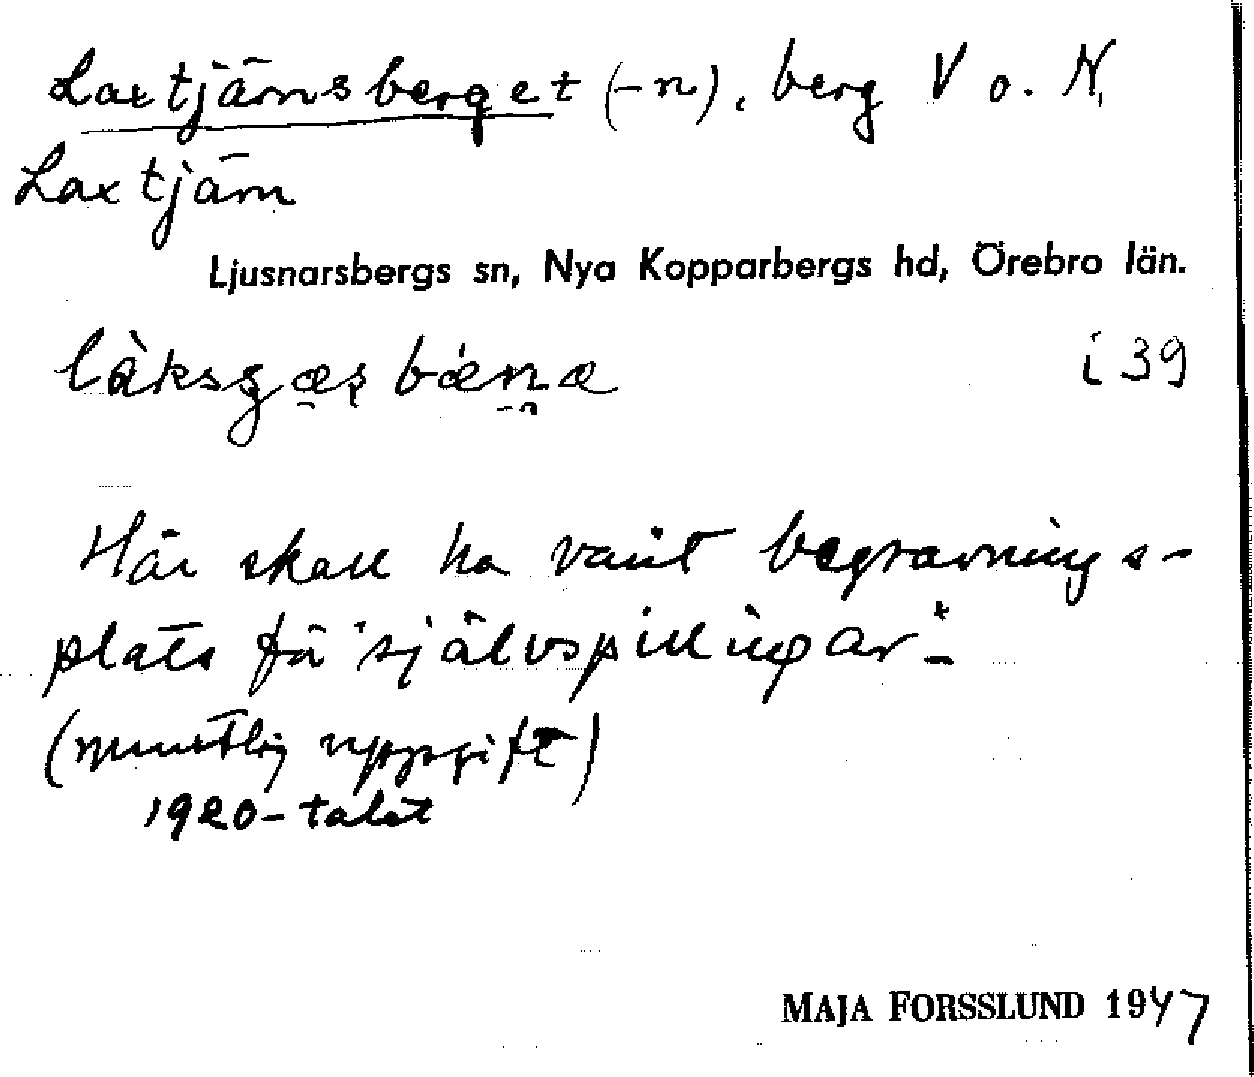 Laxtjärnsberget (-n), berg V o. N,
Laxtjärn
Ljusnarsbergs sn, Nya Kopparbergs hd, Örebro län.
i 39
Här skall ha varit begravnings-
plats för "självspillingar".
(muntlig uppgift)
1920-talet
MAJA FORSSLUND 1947